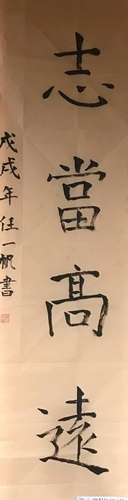 志當高遠
戊戌年任一帆書